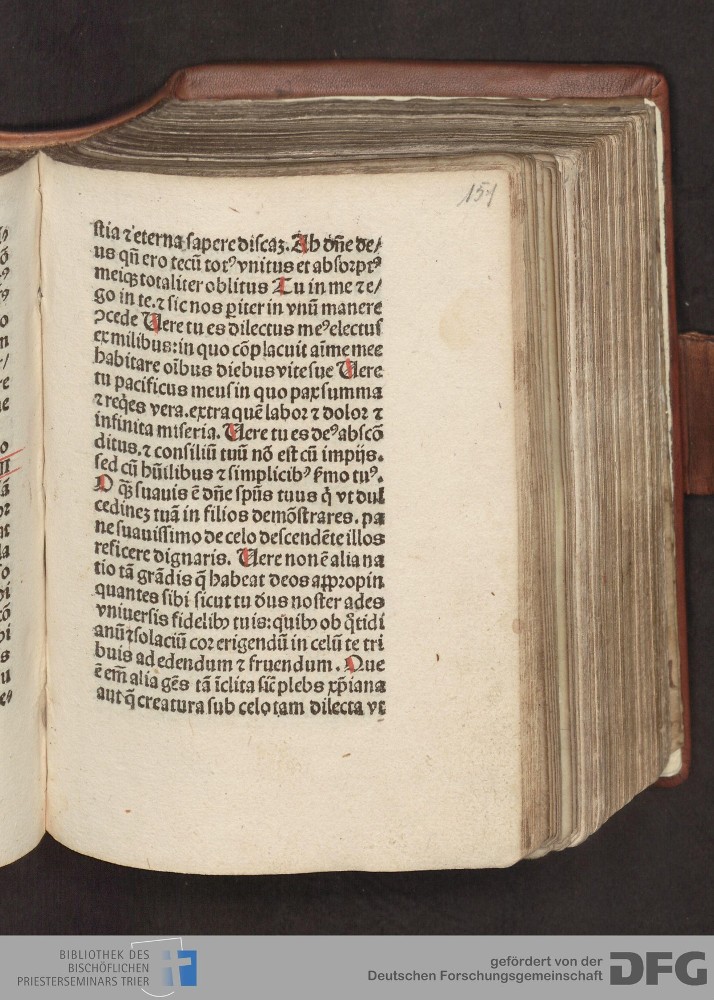 151
stia ⁊ eterna sapere discaꝫ. Ah dñe de/
us qñ ero tecũ totꝰ vnitus et absorptꝰ
meiqꝫ totaliter oblitus Tu in me ⁊ e/
go in te. ⁊ sic nos ꝑiter in vnũ manere
ↄcede Uere tu es dilectus meꝰ electus
ex milibus: in quo cõplacuit aĩme mee
habitare oĩbus diebus vite sue Uere
tu pacificus meus in quo pax summa
⁊ req̃es vera. extra quẽ labor ⁊ dolor ⁊
infinita miseria. Uere tu es deꝰ abscõ
ditus. ⁊ consiliũ tuũ nõ est cũ impijs.
sed cũ hũilibus ⁊ simplicibꝰ ẜmo tuꝰ.
O q̃ꝫ suauis ẽ dñe spũs tuus q̇ vt dul
cedineꝫ tuã in filios demõstrares. pa
ne suauissimo de celo descendẽte illos
reficere dignaris. Uere non ẽ alia na
tio tã grãdis q̃ habeat deos appropin
quantes sibi sicut tu dꝰus noster ades
vniuersis fidelibꝫ tuis: quibꝫ ob q̃tidi
anũ ↄsolaciũ cor erigendũ in celũ te tri
buis ad edendum ⁊ fruendum. Que
ẽ em̃ alia gẽs tã ĩclita sic̃ plebs xp̃iana
aut q̃ creatura sub celo tam dilecta vt
BIBLIOTHEK DES
BISCHÖFLICHEN
PRIESTERSEMINARS TRIER
gefördert von der
Deutschen Forschungsgemeinschaft
DFG